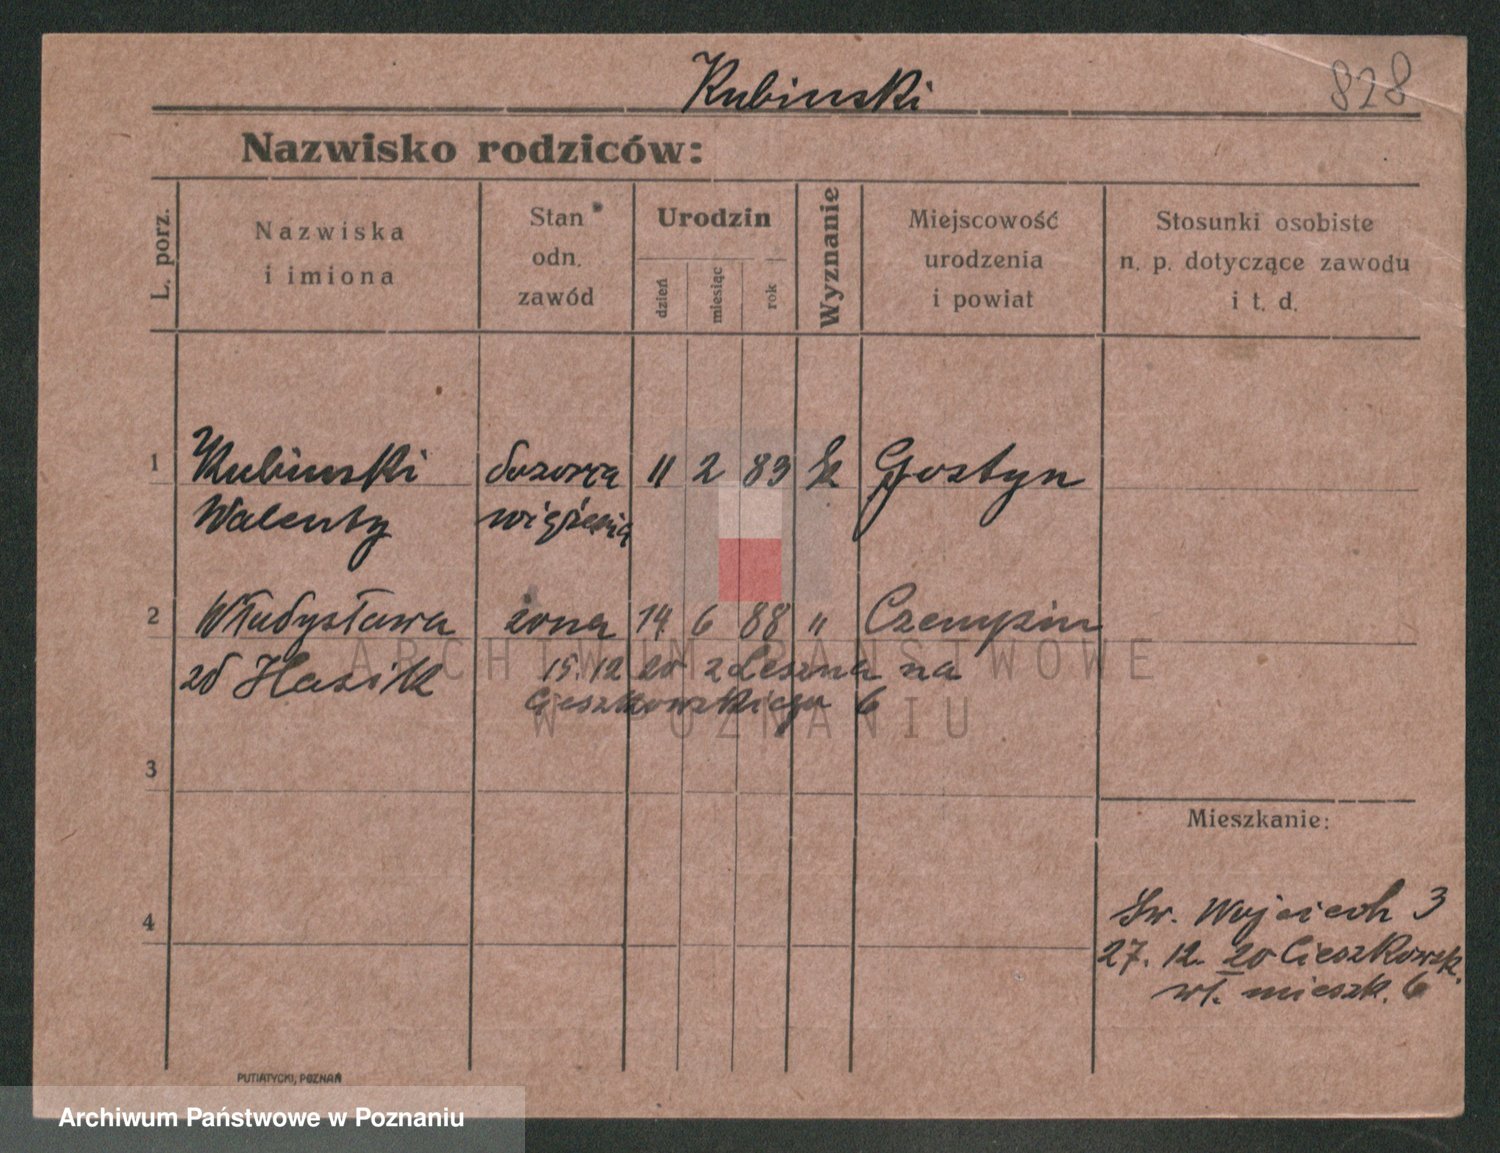 Kubinski
828
Nazwisko rodziców:
L. porz.
Nazwiska
i imiona
Stan
odn.
zawód
Urodzin
dzień
miesiąc
rok
Wyznanie
Miejscowość
urodzenia
i powiat
Stosunki osobiste
n. p. dotyczące zawodu
i t. d.
1
Kubinski
Walenty
dozorca
więzienia
11 2 83
k
Gostyn
2
Władysława
zd Hasik
żona
14 6 88 "
Czempin
15.12 20 z Leszna na
Cieszkowskiego 6
3
4
Mieszkanie:
Św. Wojciech 3
27. 12. 20 Cieszkowsk.
wł. mieszk. 6
PUTIATYCKI, POZNAŃ
ARCHIWUM PAŃSTWOWE
W POZNANIU
Archiwum Państwowe w Poznaniu